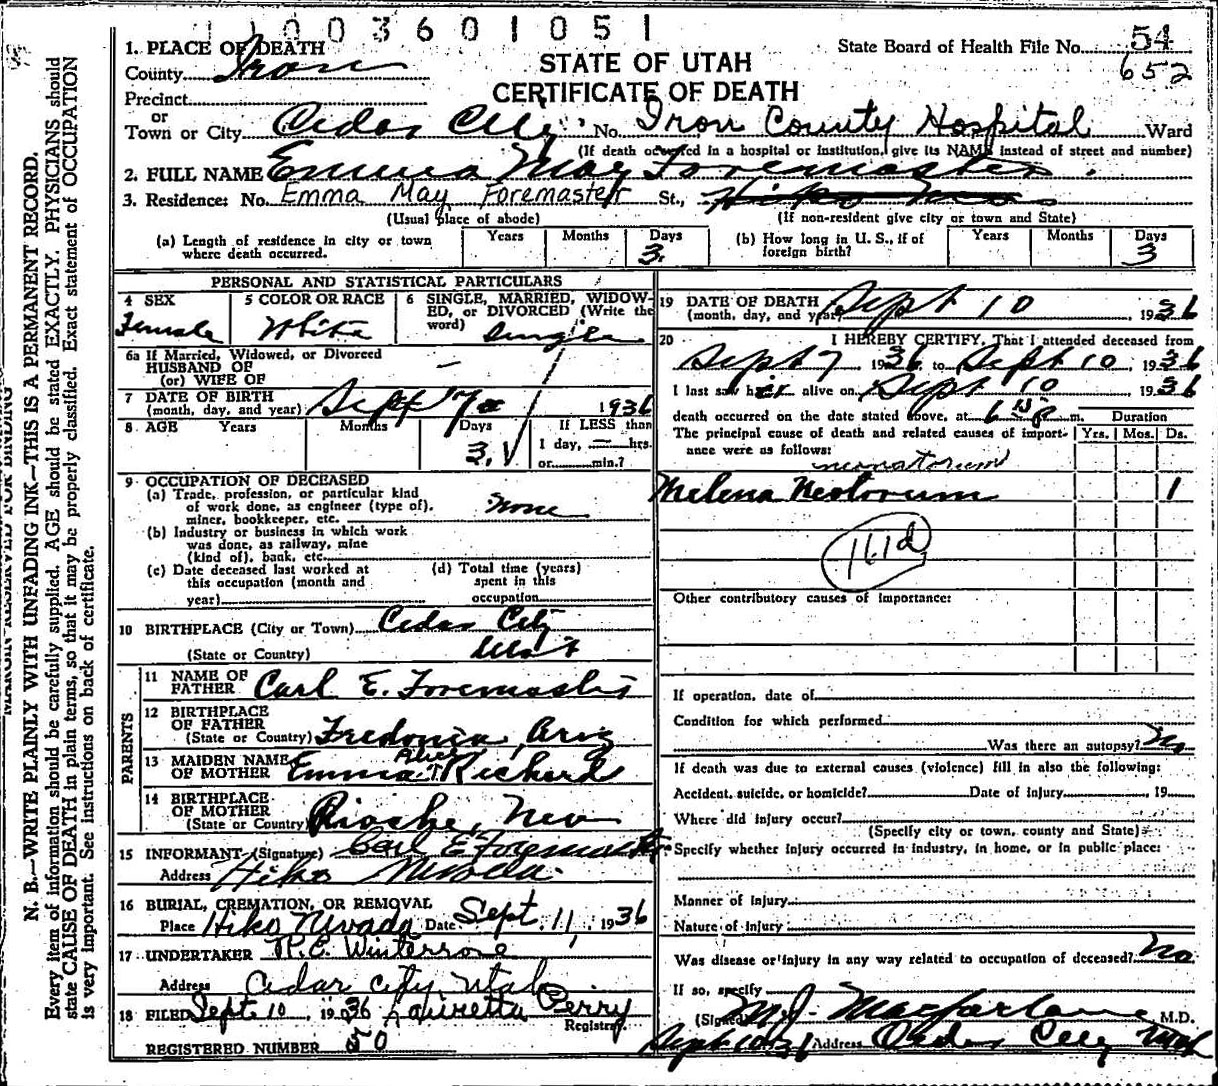 1 1 0 0 3 6 0 1 0 5 1
1. PLACE OF DEATH
County Iron
Precinct
or
Town or City Cedar City No. Iron County Hospital Ward
STATE OF UTAH
CERTIFICATE OF DEATH
State Board of Health File No. 54
652
(If death occurred in a hospital or institution, give its NAME instead of street and number)
2. FULL NAME Emma May Foremaster
3. Residence: No. Emma May Foremaster St., Hiko
(Usual place of abode) (If non-resident give city or town and State)
(a) Length of residence in city or town where death occurred. Years Months Days 3.
(b) How long in U. S., if of foreign birth? Years Months Days 3
PERSONAL AND STATISTICAL PARTICULARS
4 SEX Female
5 COLOR OR RACE White
6 SINGLE, MARRIED, WIDOWED, or DIVORCED (Write the word) Single
6a If Married, Widowed, or Divorced
HUSBAND OF
(or) WIFE OF —
7 DATE OF BIRTH
(month, day, and year) Sept 7 1936
8 AGE Years Months Days 3. If LESS than
1 day, — hrs.
or min.?
9 OCCUPATION OF DECEASED
(a) Trade, profession, or particular kind
of work done, as engineer (type of),
miner, bookkeeper, etc. None
(b) Industry or business in which work
was done, as railway, mine
(kind of), bank, etc.
(c) Date deceased last worked at
this occupation (month and
year)
(d) Total time (years)
spent in this
occupation
10 BIRTHPLACE (City or Town) Cedar City
(State or Country) Utah
PARENTS
11 NAME OF
FATHER Carl E. Foremaster
12 BIRTHPLACE
OF FATHER
(State or Country) Fredonia, Ariz
13 MAIDEN NAME
OF MOTHER Emma Alice Richard
14 BIRTHPLACE
OF MOTHER
(State or Country) Pioche, Nev
15 INFORMANT (Signature) Carl E Foremaster
Address Hiko Nevada
16 BURIAL, CREMATION, OR REMOVAL
Place Hiko Nevada Date Sept. 11, 1936
17 UNDERTAKER Winterrose
Address Cedar City, Utah
18 FILED Sept. 10, 1936 Lauretta Perry
Registrar.
REGISTERED NUMBER 50
19 DATE OF DEATH
(month, day, and year) Sept 10, 1936
20 I HEREBY CERTIFY, That I attended deceased from
Sept 7, 1936 to Sept 10, 1936
I last saw her alive on Sept 10 1936
death occurred on the date stated above, at 6 15 P m. Duration
The principal cause of death and related causes of importance were as follows: Yrs. Mos. Ds.
neonatorum
Melena Neotorum 1
161d
Other contributory causes of importance:
If operation, date of
Condition for which performed
Was there an autopsy? No
If death was due to external causes (violence) fill in also the following:
Accident, suicide, or homicide? Date of injury, 19
Where did injury occur?
(Specify city or town, county and State)
Specify whether injury occurred in industry, in home, or in public place:
Manner of injury
Nature of injury
Was disease or injury in any way related to occupation of deceased? No
If so, specify
(Signed) M.J. Macfarlane M.D.
Sept 10 36 Address Cedar City Utah
N. B.—WRITE PLAINLY WITH UNFADING INK—THIS IS A PERMANENT RECORD.
Every item of information should be carefully supplied. AGE should be stated EXACTLY. PHYSICIANS should
state CAUSE OF DEATH in plain terms, so that it may be properly classified. Exact statement of OCCUPATION
is very important. See instructions on back of certificate.
MARGIN RESERVED FOR BINDING